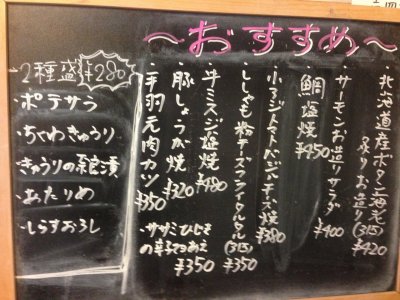 ～おすすめ～
・北海道産ボタン海老
お造り(315)
¥420
・サーモンお造りサラダ
¥400
・鯛塩焼
¥450
・小アジトマトだしチーズ焼
¥380
・ししゃも粉チーズフライタルタル
(315)
¥350
・牛ミスジ塩焼
¥480
・豚しょうが焼
¥320
・手羽元肉カツ
¥350
・ササミひじき
の辛子マヨあえ
¥350
・2種盛 ¥280
・ポテサラ
・ちくわきゅうり
・きゅうりの浅漬
・あたりめ
・しらすおろし